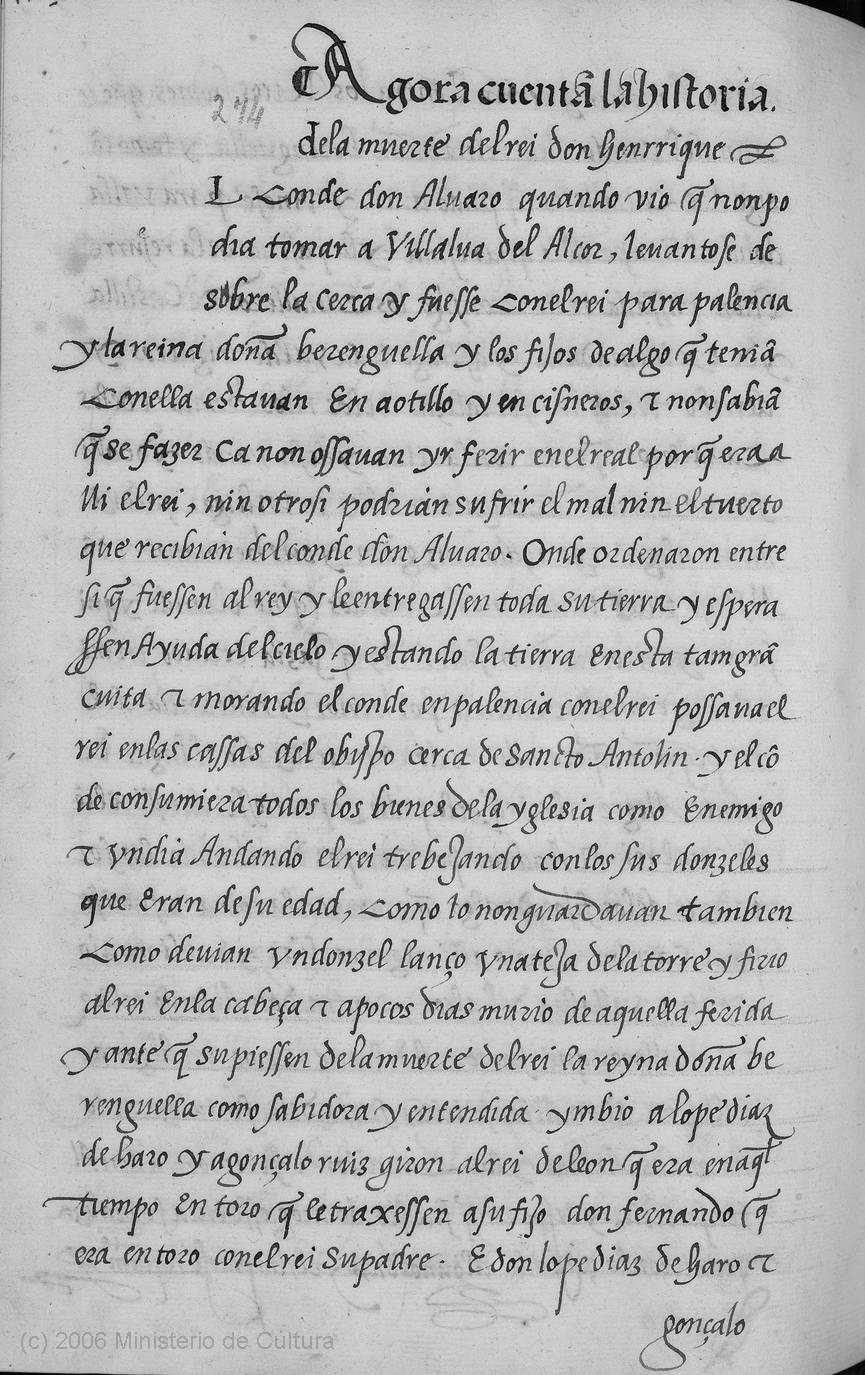 Agora cuentā la historia.
274
dela muerte del rei don henrrique
L conde don Alvaro quando vio q̄ non po
e
dia tomar a Villalva del Alcor, levantose de
sobre la cerca y fuesse conel rei para palencia
y la reina doña berenguella y los fijos de algo q̄ teniā
conella estavan En aotillo y en cisneros, τ non sabiā
q̄ se fazer Ca non ossavan yr ferir enel real por q̄ era a
lli el rei, nin otrosi podrian sufrir el mal nin el tuerto
que recibian del conde don Alvaro. Onde ordenaron entre
si q̄ fuessen al rey y le entregassen toda su tierra y espera
ssen Ayuda del cielo y estando la tierra Enesta tam grā
cuita τ morando el conde en palencia conel rei possava el
rei enlas cassas del obispo cerca de Sancto Antolin. y el cō
de consumiera todos los bienes dela yglesia como Enemigo
τ Un dia Andando el rei trebejando con los sus donzeles
que Eran de su edad, como lo non guardavan tambien
como devian un donzel lanço una teja dela torre y firio
al rei Enla cabeça τ a pocos dias murio de aquella ferida
y ante q̄ supiessen dela muerte del rei la reyna doña be
renguella como sabidora y entendida. ymbio a lope diaz
de haro y a gonçalo ruiz giron al rei de leon q̄ era en aql̄
tiempo En toro q̄ le traxessen a su fijo don fernando q̄
era en toro conel rei su padre. E don lope diaz de haro τ
gonçalo
(c) 2006 Ministerio de Cultura